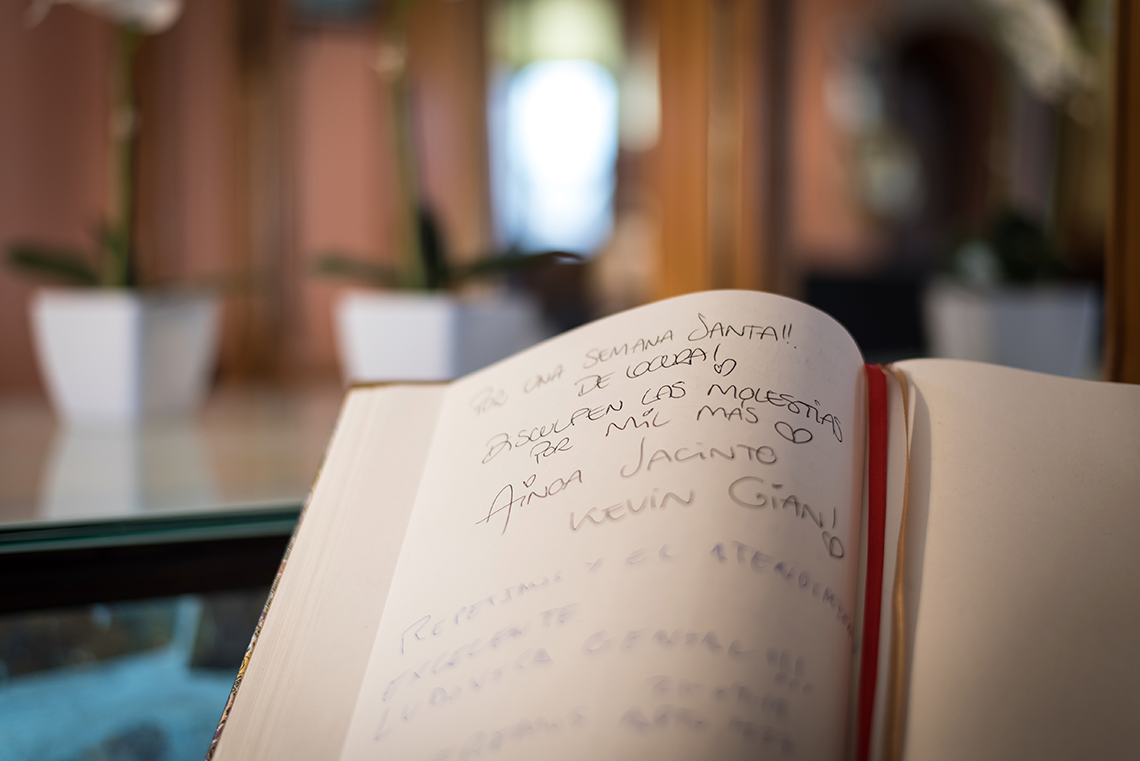 POR UNA SEMANA SANTA!!
DE LOCURA!
DISCULPEN LAS MOLESTIAS
POR MIL MÁS
AiNOA JACiNTO
KEVIN GiAN!
REPETIMOS Y EL
EXCELENTE.
GENIAL!!!